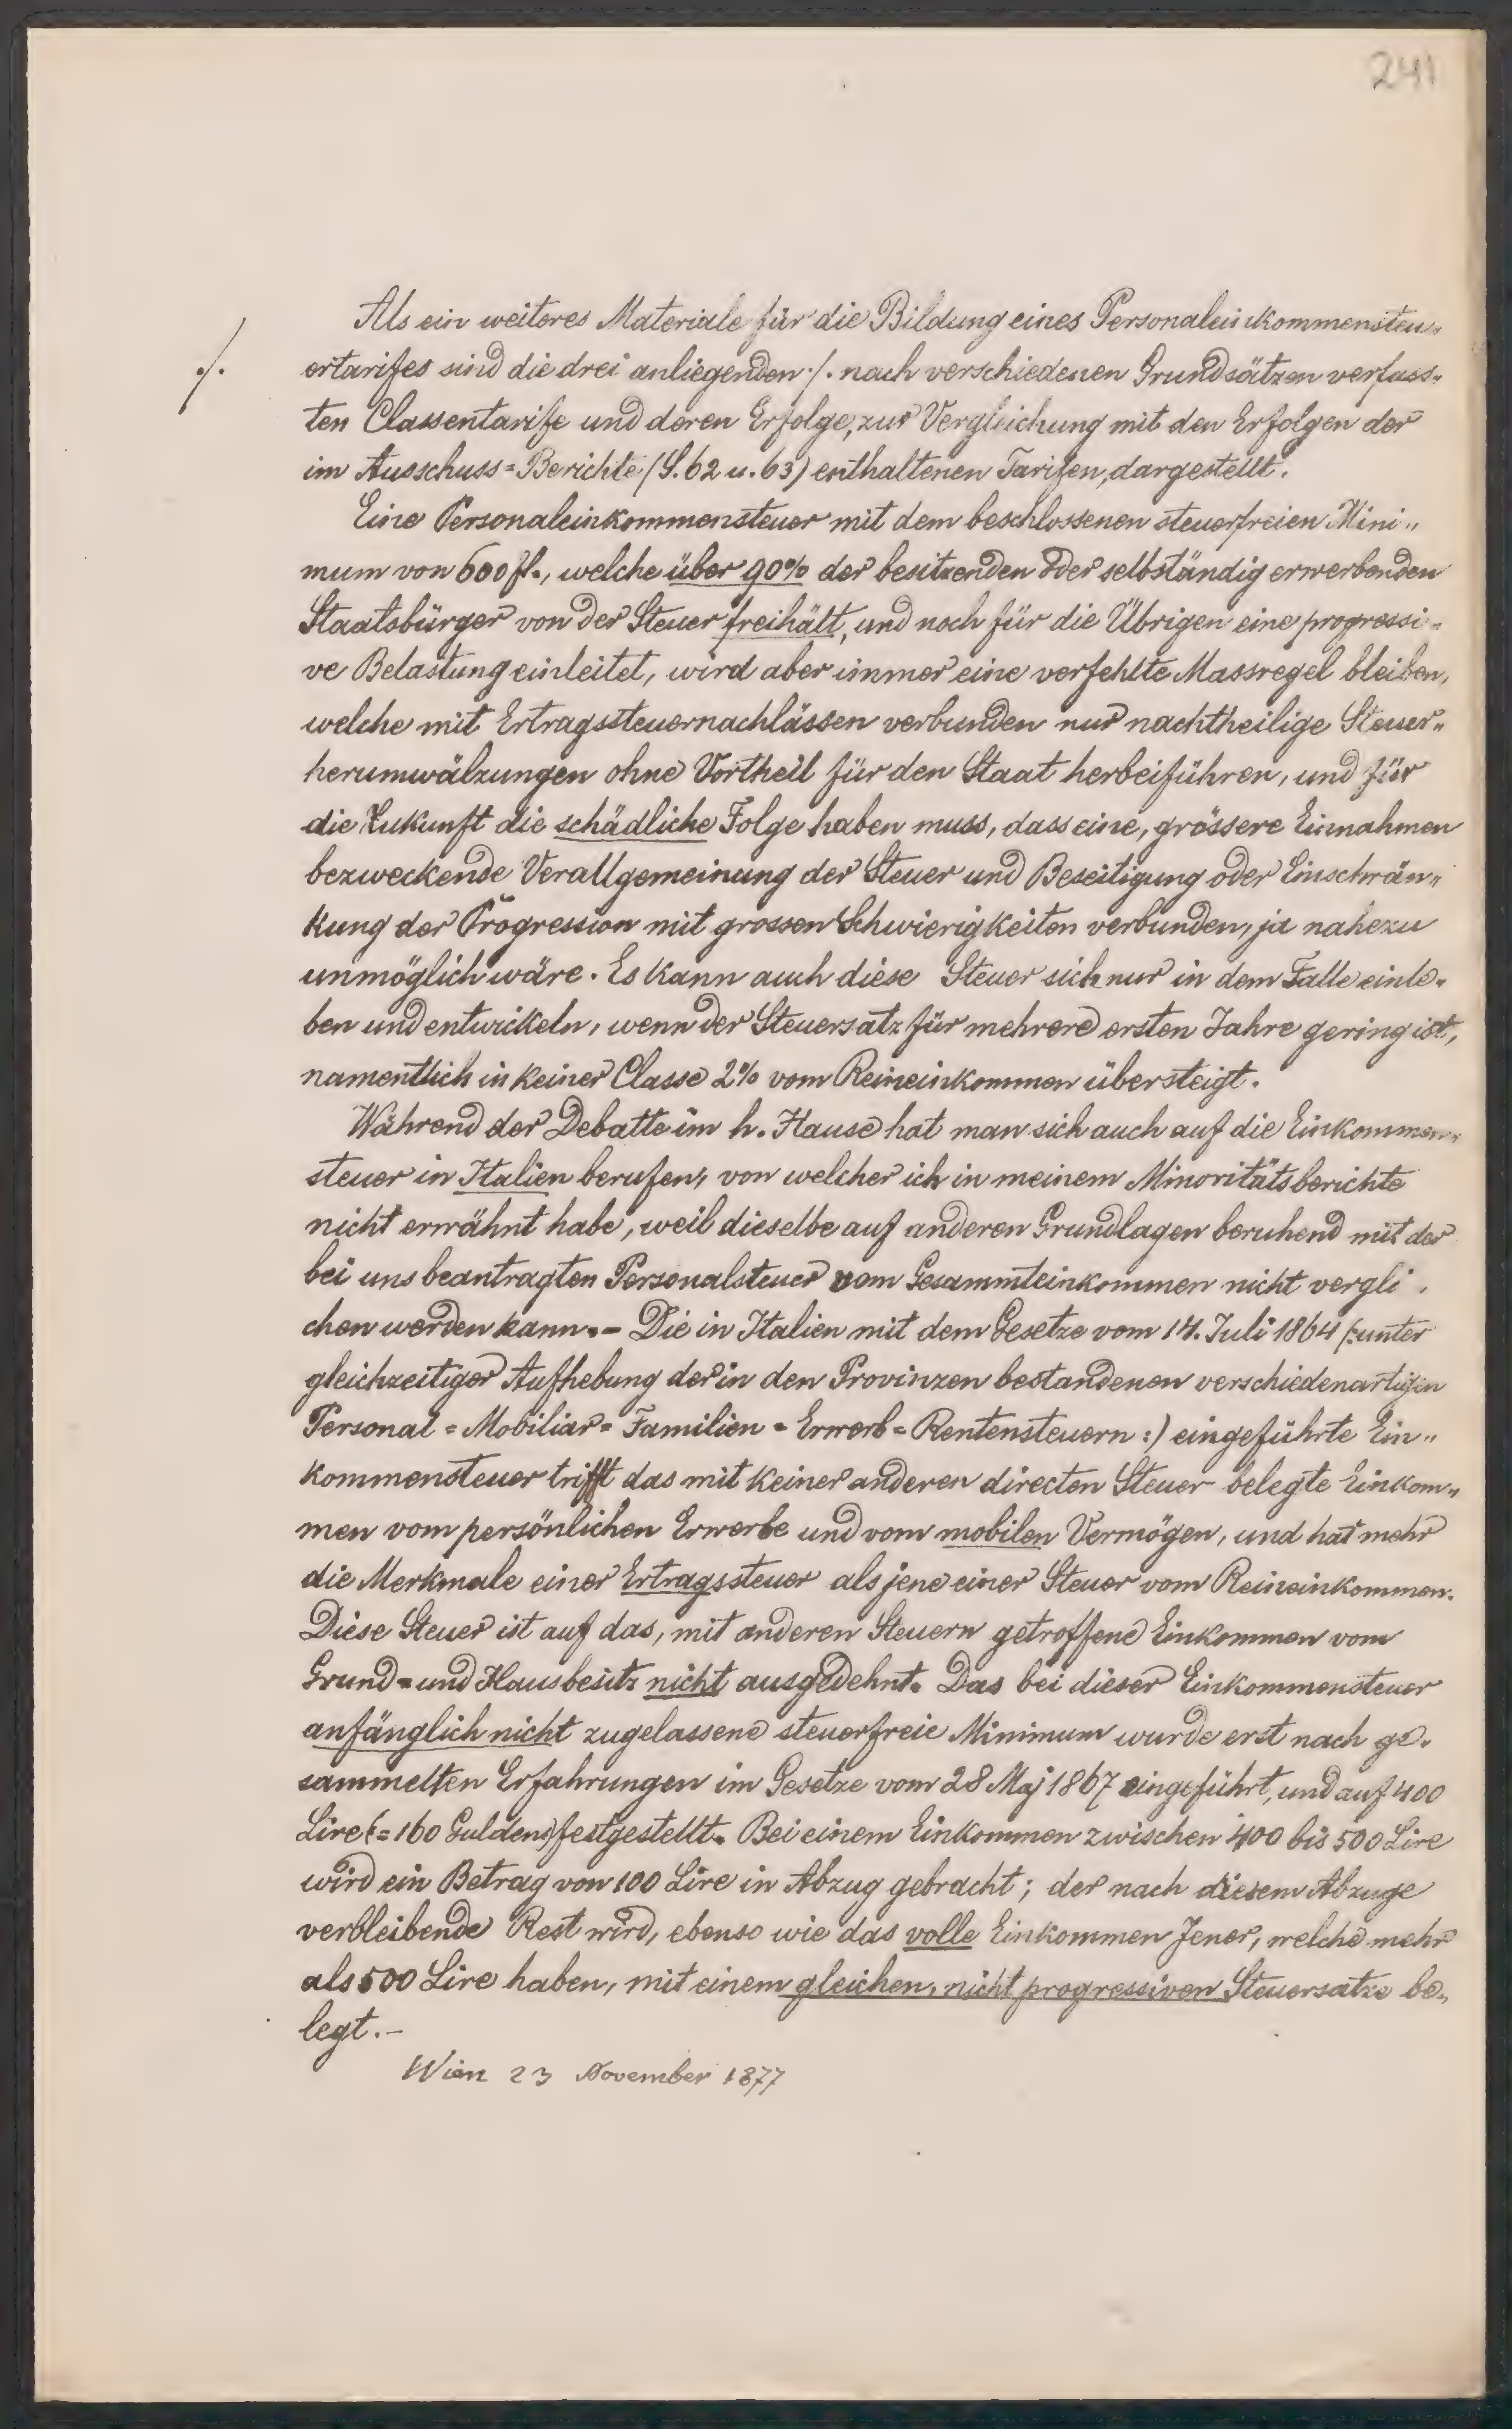 241
Als ein weiteres Materiale für die Bildung eines Personaleinkommensteu„
ertarifes sind die drei anliegenden ·/. nach verschiedenen Grundsätzen verfass„
·/.
ten Classentarife und deren Erfolge, zur Vergleichung mit den Erfolgen der
im Ausschuss=Berichte (S. 62 u. 63) enthaltenen Tarifen, dargestellt.
Eine Personaleinkommensteuer mit dem beschlossenen steuerfreien Mini„
mum von 600 fl., welche über 90% der besitzenden oder selbständig erwerbenden
Staatsbürger von der Steuer freihält, und noch für die Übrigen eine progressi„
ve Belastung einleitet, wird aber immer eine verfehlte Massregel bleiben,
welche mit Ertragssteuernachlässen verbunden nur nachtheilige Steuer„
herumwälzungen ohne Vortheil für den Staat herbeiführen, und für
die Zukunft die schädliche Folge haben muss, dass eine, grössere Einnahmen
bezweckende Verallgemeinung der Steuer und Beseitigung oder Einschrän„
kung der Progression mit grossen Schwierigkeiten verbunden, ja nahezu
unmöglich wäre. Es kann auch diese Steuer sich nur in dem Falle einle„
ben und entwickeln, wenn der Steuersatz für mehrere ersten Jahre gering ist,
namentlich in keiner Classe 2% vom Reineinkommen übersteigt.
Während der Debatte im h. Hause hat man sich auch auf die Einkommen„
steuer in Italien berufen, von welcher ich in meinem Minoritätsberichte
nicht erwähnt habe, weil dieselbe auf anderen Grundlagen beruhend mit der
bei uns beantragten Personalsteuer vom Gesammteinkommen nicht vergli„
chen werden kann.– Die in Italien mit dem Gesetze vom 14. Juli 1864 (:unter
gleichzeitiger Aufhebung der in den Provinzen bestandenen verschiedenartigen
Personal = Mobiliar = Familien = Erwerb = Rentensteuern :) eingeführte Ein„
kommensteuer trifft das mit keiner anderen directen Steuer belegte Einkom„
men vom persönlichen Erwerbe und vom mobilen Vermögen, und hat mehr
die Merkmale einer Ertragssteuer als jene einer Steuer vom Reineinkommen.
Diese Steuer ist auf das, mit anderen Steuern getroffene Einkommen vom
Grund = und Hausbesitz nicht ausgedehnt. Das bei dieser Einkommensteuer
anfänglich nicht zugelassene steuerfreie Minimum wurde erst nach ge„
sammelten Erfahrungen im Gesetze vom 28 Maj 1867 eingeführt, und auf 400
Lire (= 160 Gulden) festgestellt. Bei einem Einkommen zwischen 400 bis 500 Lire
wird ein Betrag von 100 Lire in Abzug gebracht; der nach diesem Abzuge
verbleibende Rest wird, ebenso wie das volle Einkommen Jener, welche mehr
als 500 Lire haben, mit einem gleichen, nicht progressiven Steuersatze be„
legt.–
Wien 23 November 1877